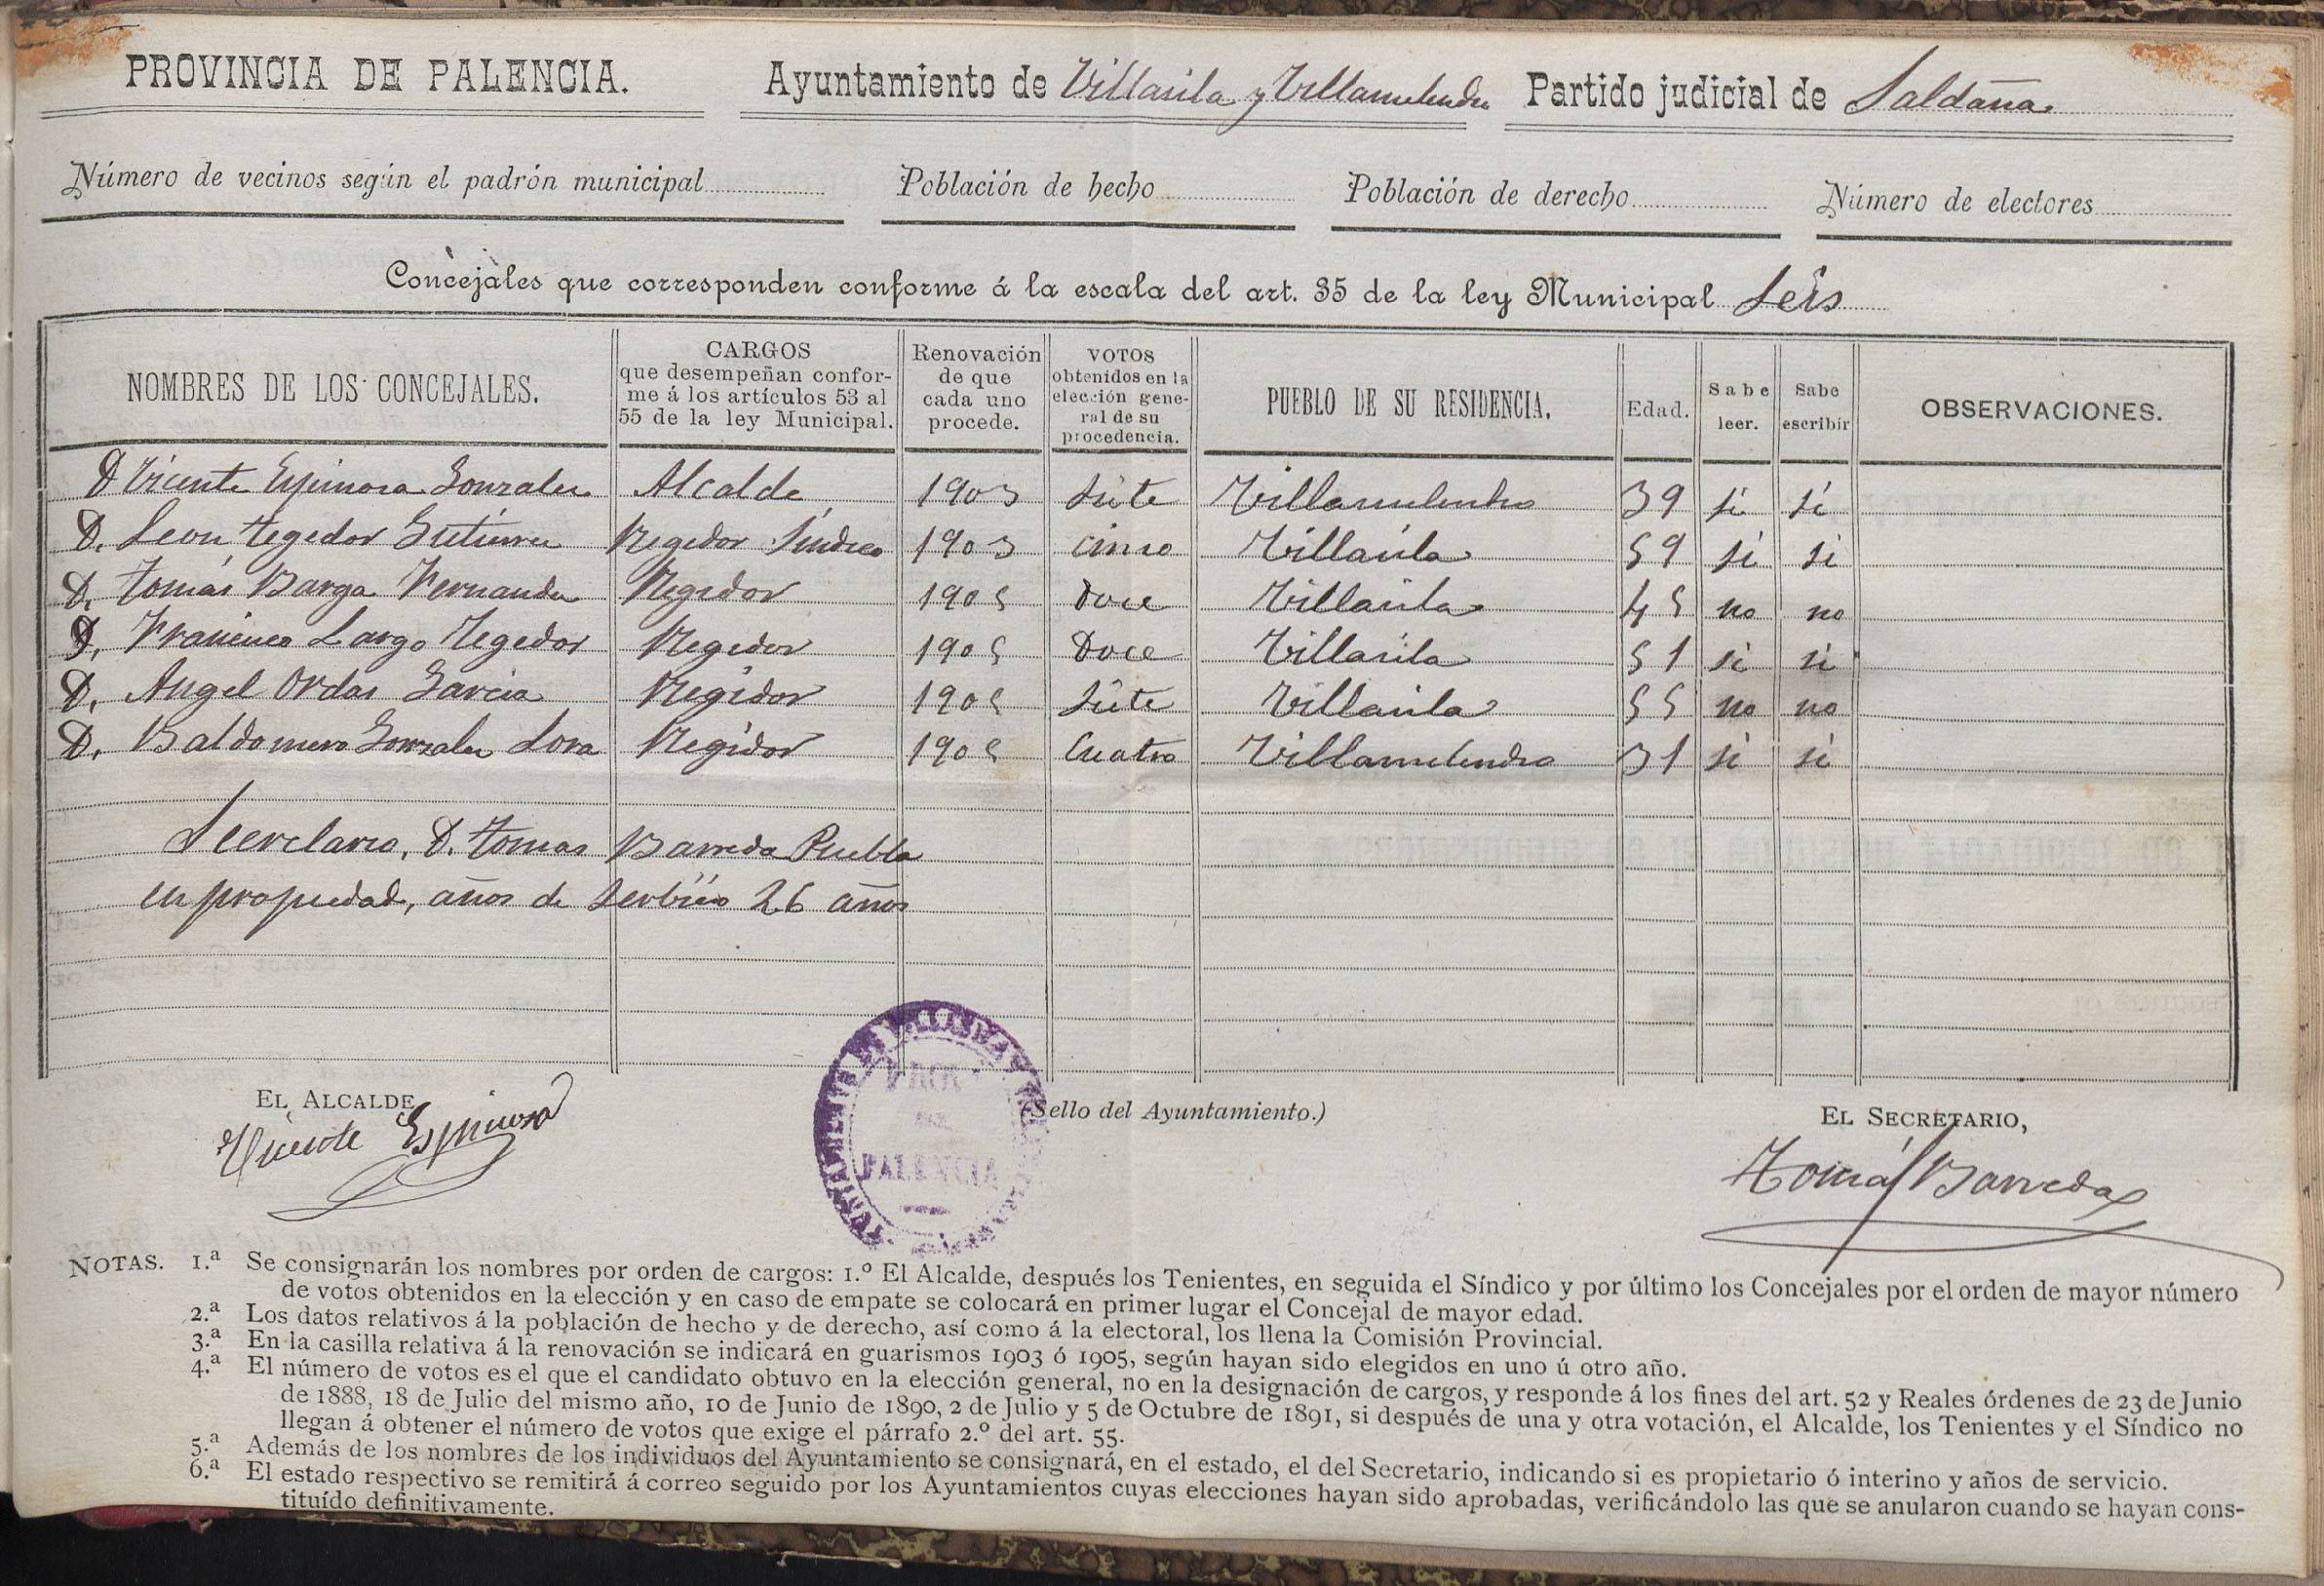 PROVINCIA DE PALENCIA. Ayuntamiento de Villasila y Villamelendro Partido judicial de Saldaña
Número de vecinos según el padrón municipal Población de hecho Población de derecho Número de electores
Concejales que corresponden conforme á la escala del art. 35 de la ley Municipal Seis
NOMBRES DE LOS CONCEJALES. CARGOS que desempeñan confor- me á los artículos 53 al 55 de la ley Municipal. Renovación de que cada uno procede. VOTOS obtenidos en la elección gene- ral de su procedencia. PUEBLO DE SU RESIDENCIA. Edad. Sabe leer. Sabe escribir OBSERVACIONES.
D Vicente Espinosa Gonzalez Alcalde 1903 Siete Villamelendro 39 si si
D. Leon Tegedor Gutierrez Regidor Sindico 1903 Cinco Villasila 59 si si
D. Tomás Barga Fernandez Regidor 1905 Doce Villasila 45 no no
D. Francisco Largo Tegedor Regidor 1905 Doce Villasila 51 si si
D. Angel Ordas Garcia Regidor 1905 Siete Villasila 55 no no
D. Baldomero Gonzalez Lora Regidor 1905 Cuatro Villamelendro 31 si si
Secretario, D. Tomas Barreda Puebla
en propiedad, años de serbicio 26 años
EL ALCALDE
Vicente Espinosa
PALENCIA
(Sello del Ayuntamiento.)
EL SECRETARIO,
Tomás Barreda
NOTAS. 1.ª Se consignarán los nombres por orden de cargos: 1.º El Alcalde, después los Tenientes, en seguida el Síndico y por último los Concejales por el orden de mayor número
de votos obtenidos en la elección y en caso de empate se colocará en primer lugar el Concejal de mayor edad.
2.ª Los datos relativos á la población de hecho y de derecho, así como á la electoral, los llena la Comisión Provincial.
3.ª En la casilla relativa á la renovación se indicará en guarismos 1903 ó 1905, según hayan sido elegidos en uno ú otro año.
4.ª El número de votos es el que el candidato obtuvo en la elección general, no en la designación de cargos, y responde á los fines del art. 52 y Reales órdenes de 23 de Junio
de 1888, 18 de Julio del mismo año, 10 de Junio de 1890, 2 de Julio y 5 de Octubre de 1891, si después de una y otra votación, el Alcalde, los Tenientes y el Síndico no
llegan á obtener el número de votos que exige el párrafo 2.º del art. 55.
5.ª Además de los nombres de los individuos del Ayuntamiento se consignará, en el estado, el del Secretario, indicando si es propietario ó interino y años de servicio.
6.ª El estado respectivo se remitirá á correo seguido por los Ayuntamientos cuyas elecciones hayan sido aprobadas, verificándolo las que se anularon cuando se hayan cons-
tituído definitivamente.